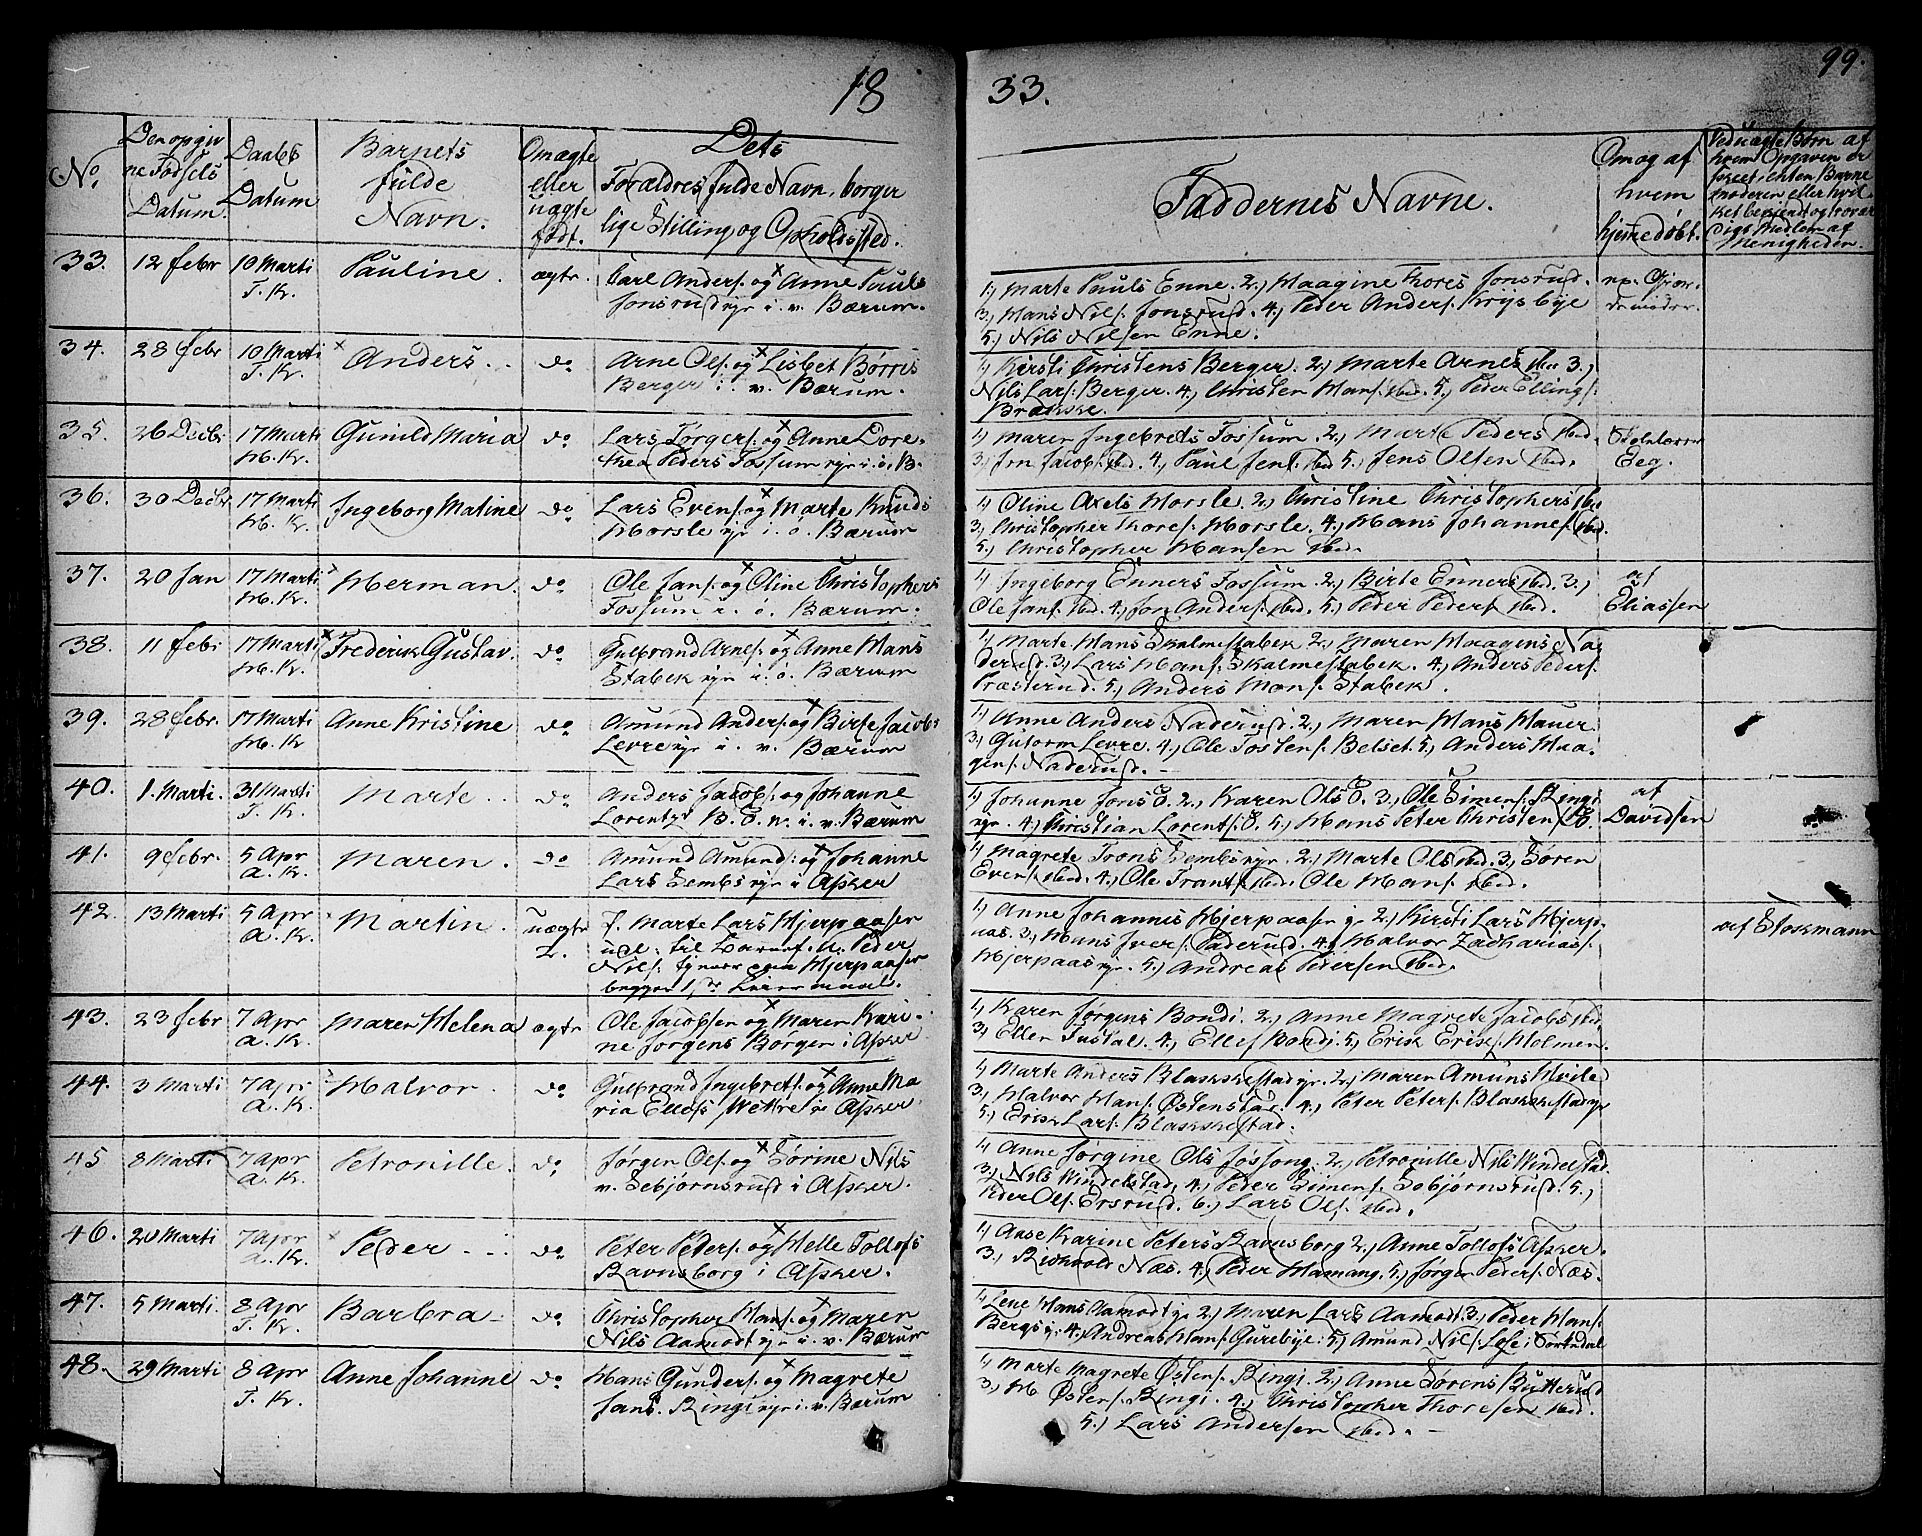 18
33.
99.
No.
Den opgiv
ne Födsels
Datum.
Daabs
Datum
Barnets
fulde
Navn.
Om ægte
eller
uægte
født.
Dets
Forældres fulde Navn, borger
lige Stilling og Opholdssted.
Faddernes Navne.
Om og af
hvem
hjemedøbt.
Ved uægte Børn af
hvem Opgaven er
skeet, enten Barne
moderen eller hvil
ket bekjendt og trovær
digt Medlem af
Menigheden.
33. 12 febr 10 Marti Pauline. ægtr. Carl Anders. og Anne Pauls
T. K. Jonsrud ejr i. v. Bærum.
1,) Marte Pauls Enne. 2,) Maagine Thores Jonsrud.
3,) Hans Nils. Jonsrud. 4,) Peder Anders. Krysbye
5,) Nils Nilsen Enne.
34. 28 febr 10 Marti Anders. do Arne Ols. og Lisbet Børres
T. K. Berger i. v. Bærum.
1,) Kirsti Christens Berger. 2,) Marte Arnes ibd 3,)
Nils Lars. Berger. 4,) Christen Hans. ibd. 5,) Peder Ellings.
Brække.
35. 26 Decbr 17 Marti Gunild Maria do Lars Torgers. og Anne Dore.
H. K. thea Peders Fossum ejr i. ö. B.
1,) Maren Ingebrets Fossum. 2,) Marte Peders ibd.
3,) Jon Jacobs. ibd. 4,) Paul Jens. ibd 5,) Jens Olsen ibd.
Skolelærer
Eeg.
36. 30 Decbr 17 Marti Ingeborg Matine do Lars Evens. og Marte Knuds
H. K. Horsle ejr i. ö. Bærum
1,) Oline Axels Horsle. 2,) Christine Christophers ibd
3,) Christopher Thores. Horsle. 4,) Hans Johannes. ibd.
5,) Christopher Hansen ibd.
37. 20 Jan 17 Marti Herman. do Ole Jans. og Oline Christophers
H. K. Fossum i. ö. Bærum.
1,) Ingeborg Enners Fossum. 2,) Birte Enners ibd. 3,)
Ole Jans. ibd. 4,) Jon Anders. ibd. 5,) Peder Peders. ibd.
af
Eliassen
38. 11 febr 17 Marti Frederik Gustav. do Gulbrand Arnes. og Anne Hans
H. K. Stabek ejr i. ö. Bærum
1,) Marte Hans Skalmestabek 2,) Maren Haagens Na
derud. 3,) Lars Hans. Skalmestabek. 4,) Anders Peders.
Præsterud. 5,) Anders Mons. Stabek.
39. 28 febr. 17 Marti Anne Kristine do Amund Anders. og Birte Jacobs
H. K. Levre ejr i. v. Bærum
1,) Anne Anders Naderud. 2,) Maren Hans Hauer
3,) Gutorm Levre. 4,) Ole Tostens. Belset. 5,) Anders Haa-
gens. Naderud.
40. 1. Marti. 31 Marti Marte. do Anders Jacobs. og Johanne
T. K. Lorentzd B. Ö. v. i. v. Bærum
1,) Johanne Jons Ö. 2,) Karen Ols Ö. 3,) Ole Simens. Ringi
ejr. 4,) Christian Lorents. Ö. 5,) Hans Peter Christens. Ö.
af
Davidsen
41. 9 febr. 5 Apr Maren. do Amund Amunds. og Johanne
A. K. Lars Sembs ejr i Asker
1,) Magrete Trons Sembs ejr. 2,) Marte Ols ibd. 3,) Søren
Evens. ibd. 4,) Ole Trants. ibd. Ole Hans. ibd.
42. 13 Marti 5 Apr Martin. uægte P. Marte Lars Hjerpaasen
A. K. 2. udl. til Barnef. U. Peder
Nils. tjener paa Hjerpaasen
begges 1ste Leiermaal.
1,) Anne Johannes Hjerpaasen ejr 2,) Kirsti Lars Hjerp-
aas. 3,) Hans Ivers. Paderud. 4,) Halvor Zacharias.
Hjerpaas ejr. 5,) Andreas Pedersen ibd.
af Stokmann
43. 23 febr 7 Apr Maren Helena ægtr Ole Jacobsen og Maren Kari-
A. K. ne Jørgens Borgen i Asker.
1,) Karen Jørgens Bondi. 2,) Anne Magrete Jacobs ibd.
3,) Ellen Tustal. 4,) Ellef Bondi. 5,) Erik Eriks. Holmen.
44. 3 Marti 7 Apr Halvor. do Gulbrand Ingebrets. og Anne Ma
A. K. ria Ellefs Wettre i Asker.
1,) Marte Anders Blakkestad ejr. 2,) Maren Amuns Hvile
3,) Halvor Hans. Østenstad. 4,) Peter Peters. Blakkestad ejr
5,) Erik Lars. Blakkestad.
45 8 Marti 7 Apr Petronille. do Jørgen Ols. og Sørine Nils
A. K. v. Sebjørnsrud i Asker.
1,) Anne Jørgine Ols Jøssong. 2,) Petronille Nils Windelstad.
3,) Nils Windelstad, 4,) Peder Simens. Sebjørnsrud. 5,)
Peder Ols. Ersrud. 6,) Lars Ols. ibd.
46. 20 Marti 7 Apr Peder. do Peter Peders. og Helle Tollofs
A. K. Ravnsborg i Asker.
1,) Aase Karine Peters Ravnsborg 2,) Anne Tollofs Asker.
3,) Rishvold Næs. 4,) Peder Hamang. 5,) Jørgen Peders. Næs.
47. 5 Marti. 8 Apr Barbra. do Christopher Hans. og Maren
T. K. Nils Aamodt ejr i. v. Bærum
1,) Lene Hans Aamodt ejr 2,) Maren Lars Aamodt. 3,) Peder Hans.
Bergs ejr. 4,) Andreas Hans. Gurebye. 5,) Amund Nils. i Sørkedal
48. 29 Marti 8 Apr Anne Johanne do Hans Gunders. og Magrete
T. K. Jans. Ringi ejr i. v. Bærum
1,) Marte Magrete Østens. Ringi. 2,) Anne Sørens Butterud
3,) H Østens. Ringi. 4,) Christopher Thoresen ibd.
5,) Lars Andersen ibd.